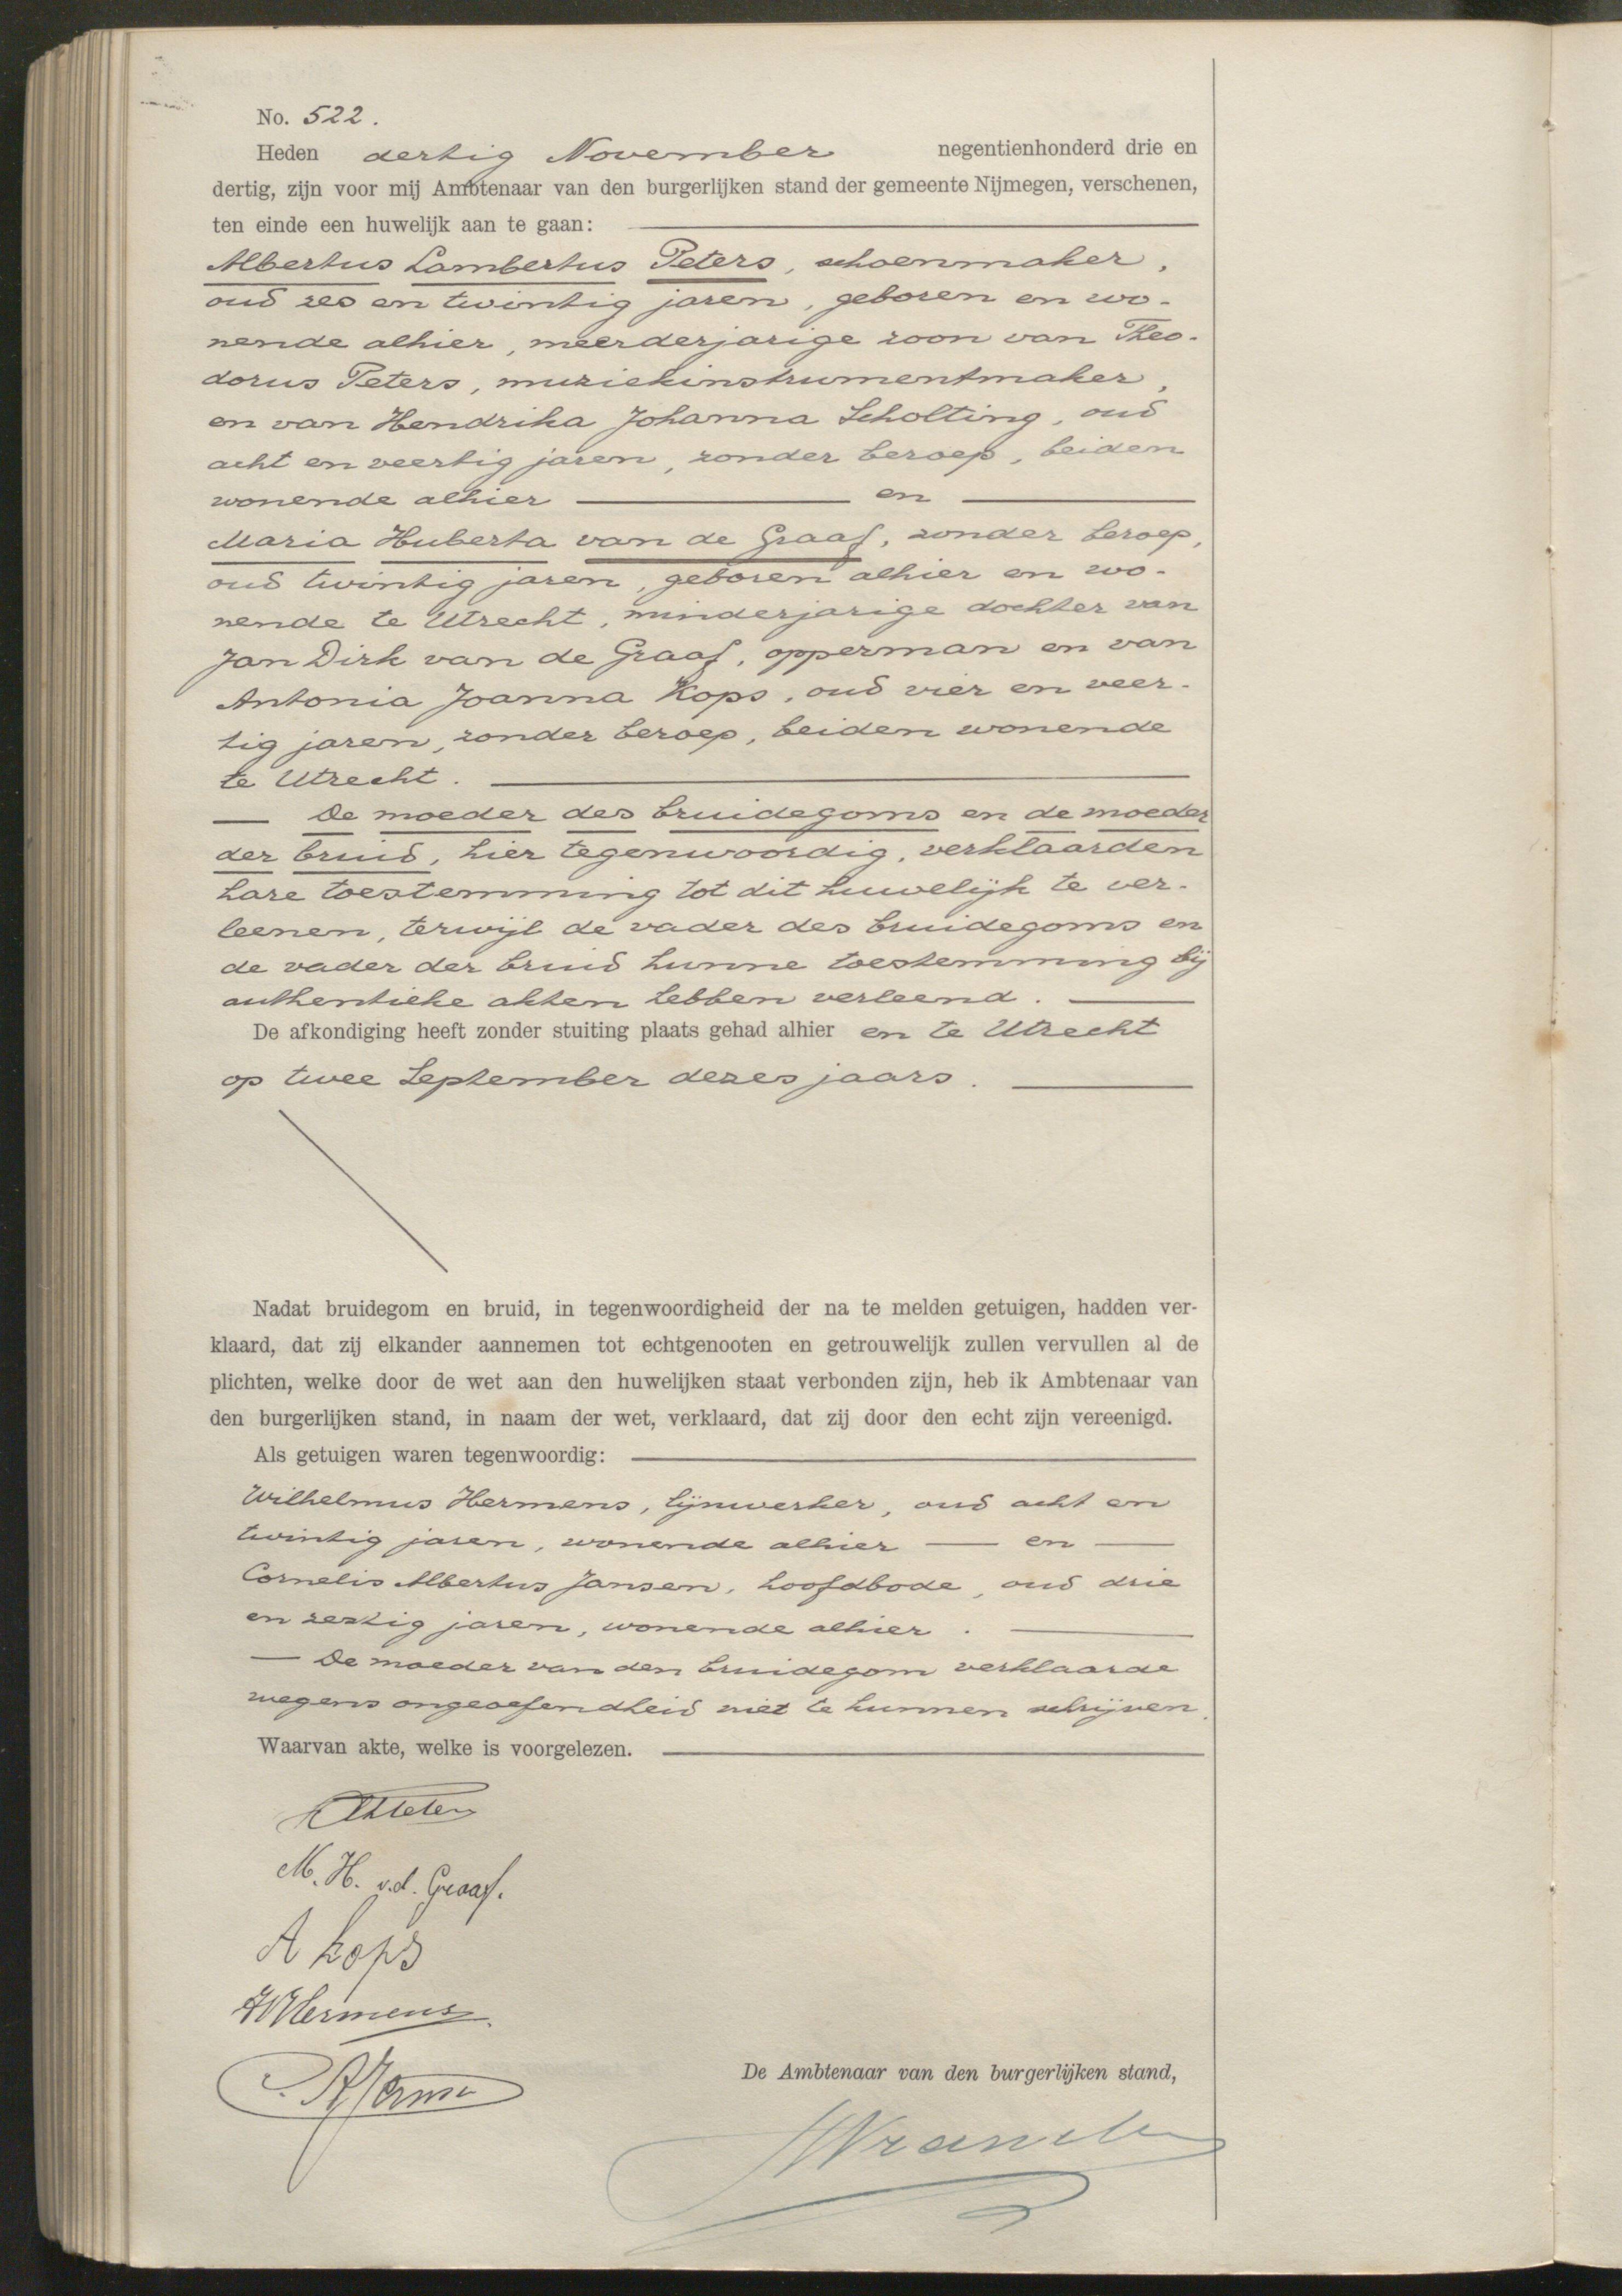 No. 522.
Heden dertig November negentienhonderd drie en
dertig, zijn voor mij Ambtenaar van den burgerlijken stand der gemeente Nijmegen, verschenen,
ten einde een huwelijk aan te gaan:
Albertus Lambertus Peters, schoenmaker,
oud zes en twintig jaren, geboren en wo-
nende alhier, meerderjarige zoon van Theo-
dorus Peters, muziekinstrumentmaker,
en van Hendrika Johanna Scholting, oud
acht en veertig jaren, zonder beroep, beiden
wonende alhier en
Maria Huberta van de Graaf, zonder beroep,
oud twintig jaren, geboren alhier en wo-
nende te Utrecht, minderjarige dochter van
Jan Dirk van de Graaf, opperman en van
Antonia Joanna Kops, oud vier en veer-
tig jaren, zonder beroep, beiden wonende
te Utrecht.
— De moeder des bruidegoms en de moeder
der bruid, hier tegenwoordig, verklaarden
hare toestemming tot dit huwelijk te ver-
leenen, terwijl de vader des bruidegoms en
de vader der bruid hunne toestemming bij
authentieke akten hebben verleend.
De afkondiging heeft zonder stuiting plaats gehad alhier en te Utrecht
op twee September dezes jaars.
Nadat bruidegom en bruid, in tegenwoordigheid der na te melden getuigen, hadden ver-
klaard, dat zij elkander aannemen tot echtgenooten en getrouwelijk zullen vervullen al de
plichten, welke door de wet aan den huwelijken staat verbonden zijn, heb ik Ambtenaar van
den burgerlijken stand, in naam der wet, verklaard, dat zij door den echt zijn vereenigd.
Als getuigen waren tegenwoordig:
Wilhelmus Hermens, lijnwerker, oud acht en
twintig jaren, wonende alhier — en —
Cornelis Albertus Jansen, hoofdbode, oud drie
en zestig jaren, wonende alhier.
— De moeder van den bruidegom verklaarde
wegens ongeoefendheid niet te kunnen schrijven.
Waarvan akte, welke is voorgelezen.
M. H. v.d. Graaf.
A Kops
W Hermens
De Ambtenaar van den burgerlijken stand,